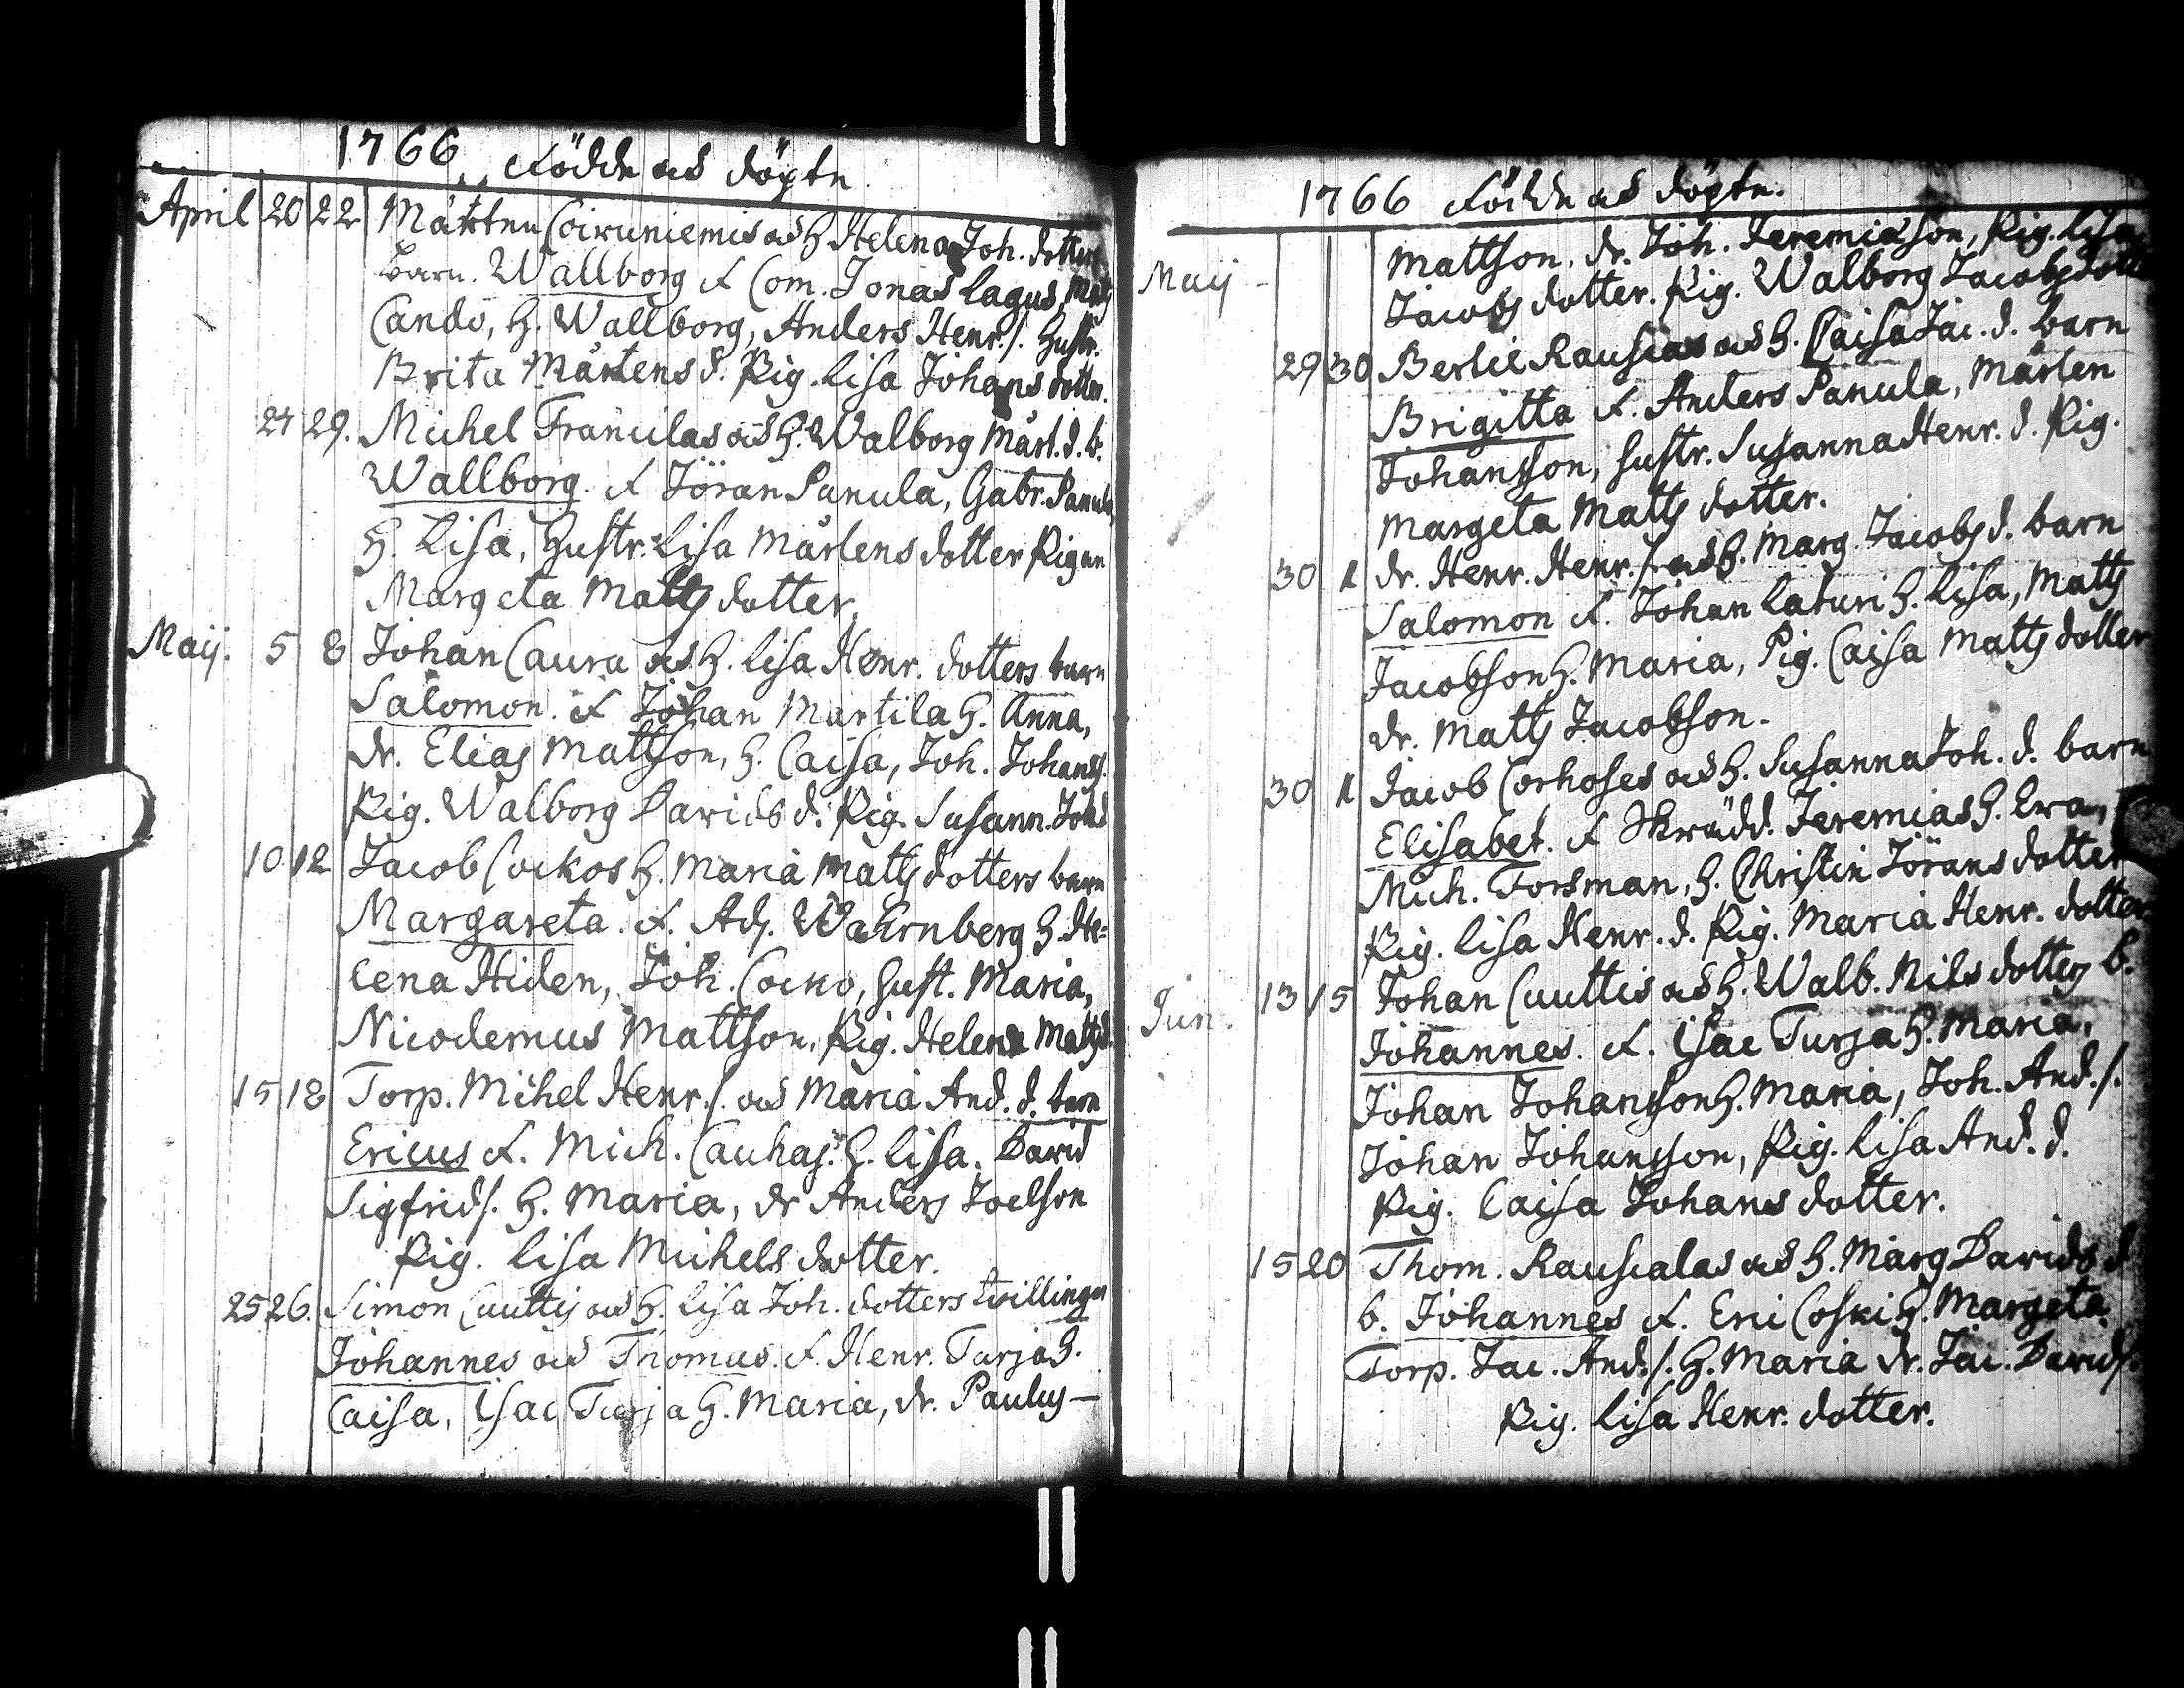 1766 Födde och döpte
April 20 22 Mårten Coiruniemis och H Helena Joh. dotters
barn. Wallborg F Com. Jonas Lagus, Matts
Cando, H. Wallborg, Anders Henr. s. Hustr.
Brita Mårtens d. Pig. Lisa Johans dotter.
27 29. Michel Francilas och H. Walborg Mårt. d. b.
Wallborg. F Jöran Panula, Gabr. Panula,
H. Lisa, Hustr. Lisa Mårtens dotter Pigan
Margeta Matts dotter.
Maij. 5 8 Johan Caura och H. Lisa Henr. dotters barn
Salomon. F Johan Martila H. Anna,
dr. Elias Mattson, H. Caisa, Joh. Johans s.
Pig. Walborg Davids d. Pig. Susann. Joh d
10 12 Jacob Cockos H. Maria Matts dotters barn
Margareta. F. Adj. Wahrnberg H. He=
lena Hiden, Joh. Cocko, Hust. Maria,
Nicodemus Mattson, Pig. Helena Matts d.
15 18 Torp. Michel Henr. s. och Maria And. d. barn
Ericus F. Mich. Cauhaj. H. Lisa, David
Sigfrids s. H. Maria, dr Anders Joelson
Pig. Lisa Michels dotter.
25 26. Simon Cuuttis och H. Lisa Joh. dotters tvillingar
Johannes och Thomas. F Henr. Turja H.
Caisa, Isac Turja H. Maria, dr. Paulus —
1766 Födde och döpte.
Maij Mattson, dr. Joh. Jeremiason, Pig. Lisa
Jacobs dotter. Pig. Walborg Jacobs dotter
29 30 Bertil Rauscas och H. Caisa Jac. d. barn
Brigitta F. Anders Panula, Mårten
Johansson, hustr. Susanna Henr. d. Pig.
Margeta Matts dotter.
30 1 dr. Henr. Henr. s. och H. Marg. Jacobs d. barn
Salomon F. Johan Laturi H. Lisa, Matts
Jacobson H. Maria, Pig. Caisa Matts dotter
dr. Matts Jacobson.
30 1 Jacob Corhoses och H. Susanna Joh. d. barn
Elisabet. F Skrädd. Jeremias H. Ewa,
Mich. Forsman, H. Christin Jörans dotter
Pig. Lisa Henr. d. Pig. Maria Henr. dotter
Jun. 13 15 Johan Cuuttis och H. Walb. Nils dotters b.
Johannes. F. Isac Turja H. Maria,
Johan Johansson H. Maria, Joh. And. s.
Johan Johansson, Pig. Lisa And. d.
Pig. Caisa Johans dotter.
15 20 Thom. Rauscalas och H. Marg Davids d
b. Johannes F. Eric Coski H. Margeta.
Torp. Jac. And. s. H. Maria dr. Jac. Davids s.
Pig. Lisa Henr. dotter.